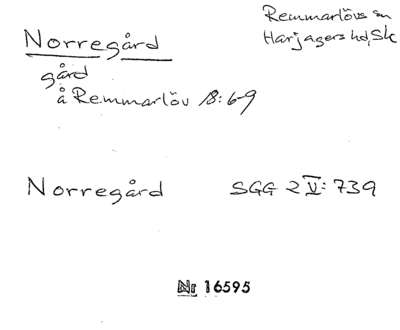 Norregård
Remmarlövs sn
Harjagers hd, Sk
gård
å Remmarlöv 18:6-9
Norregård SGG 2 V: 739
Nr 16595